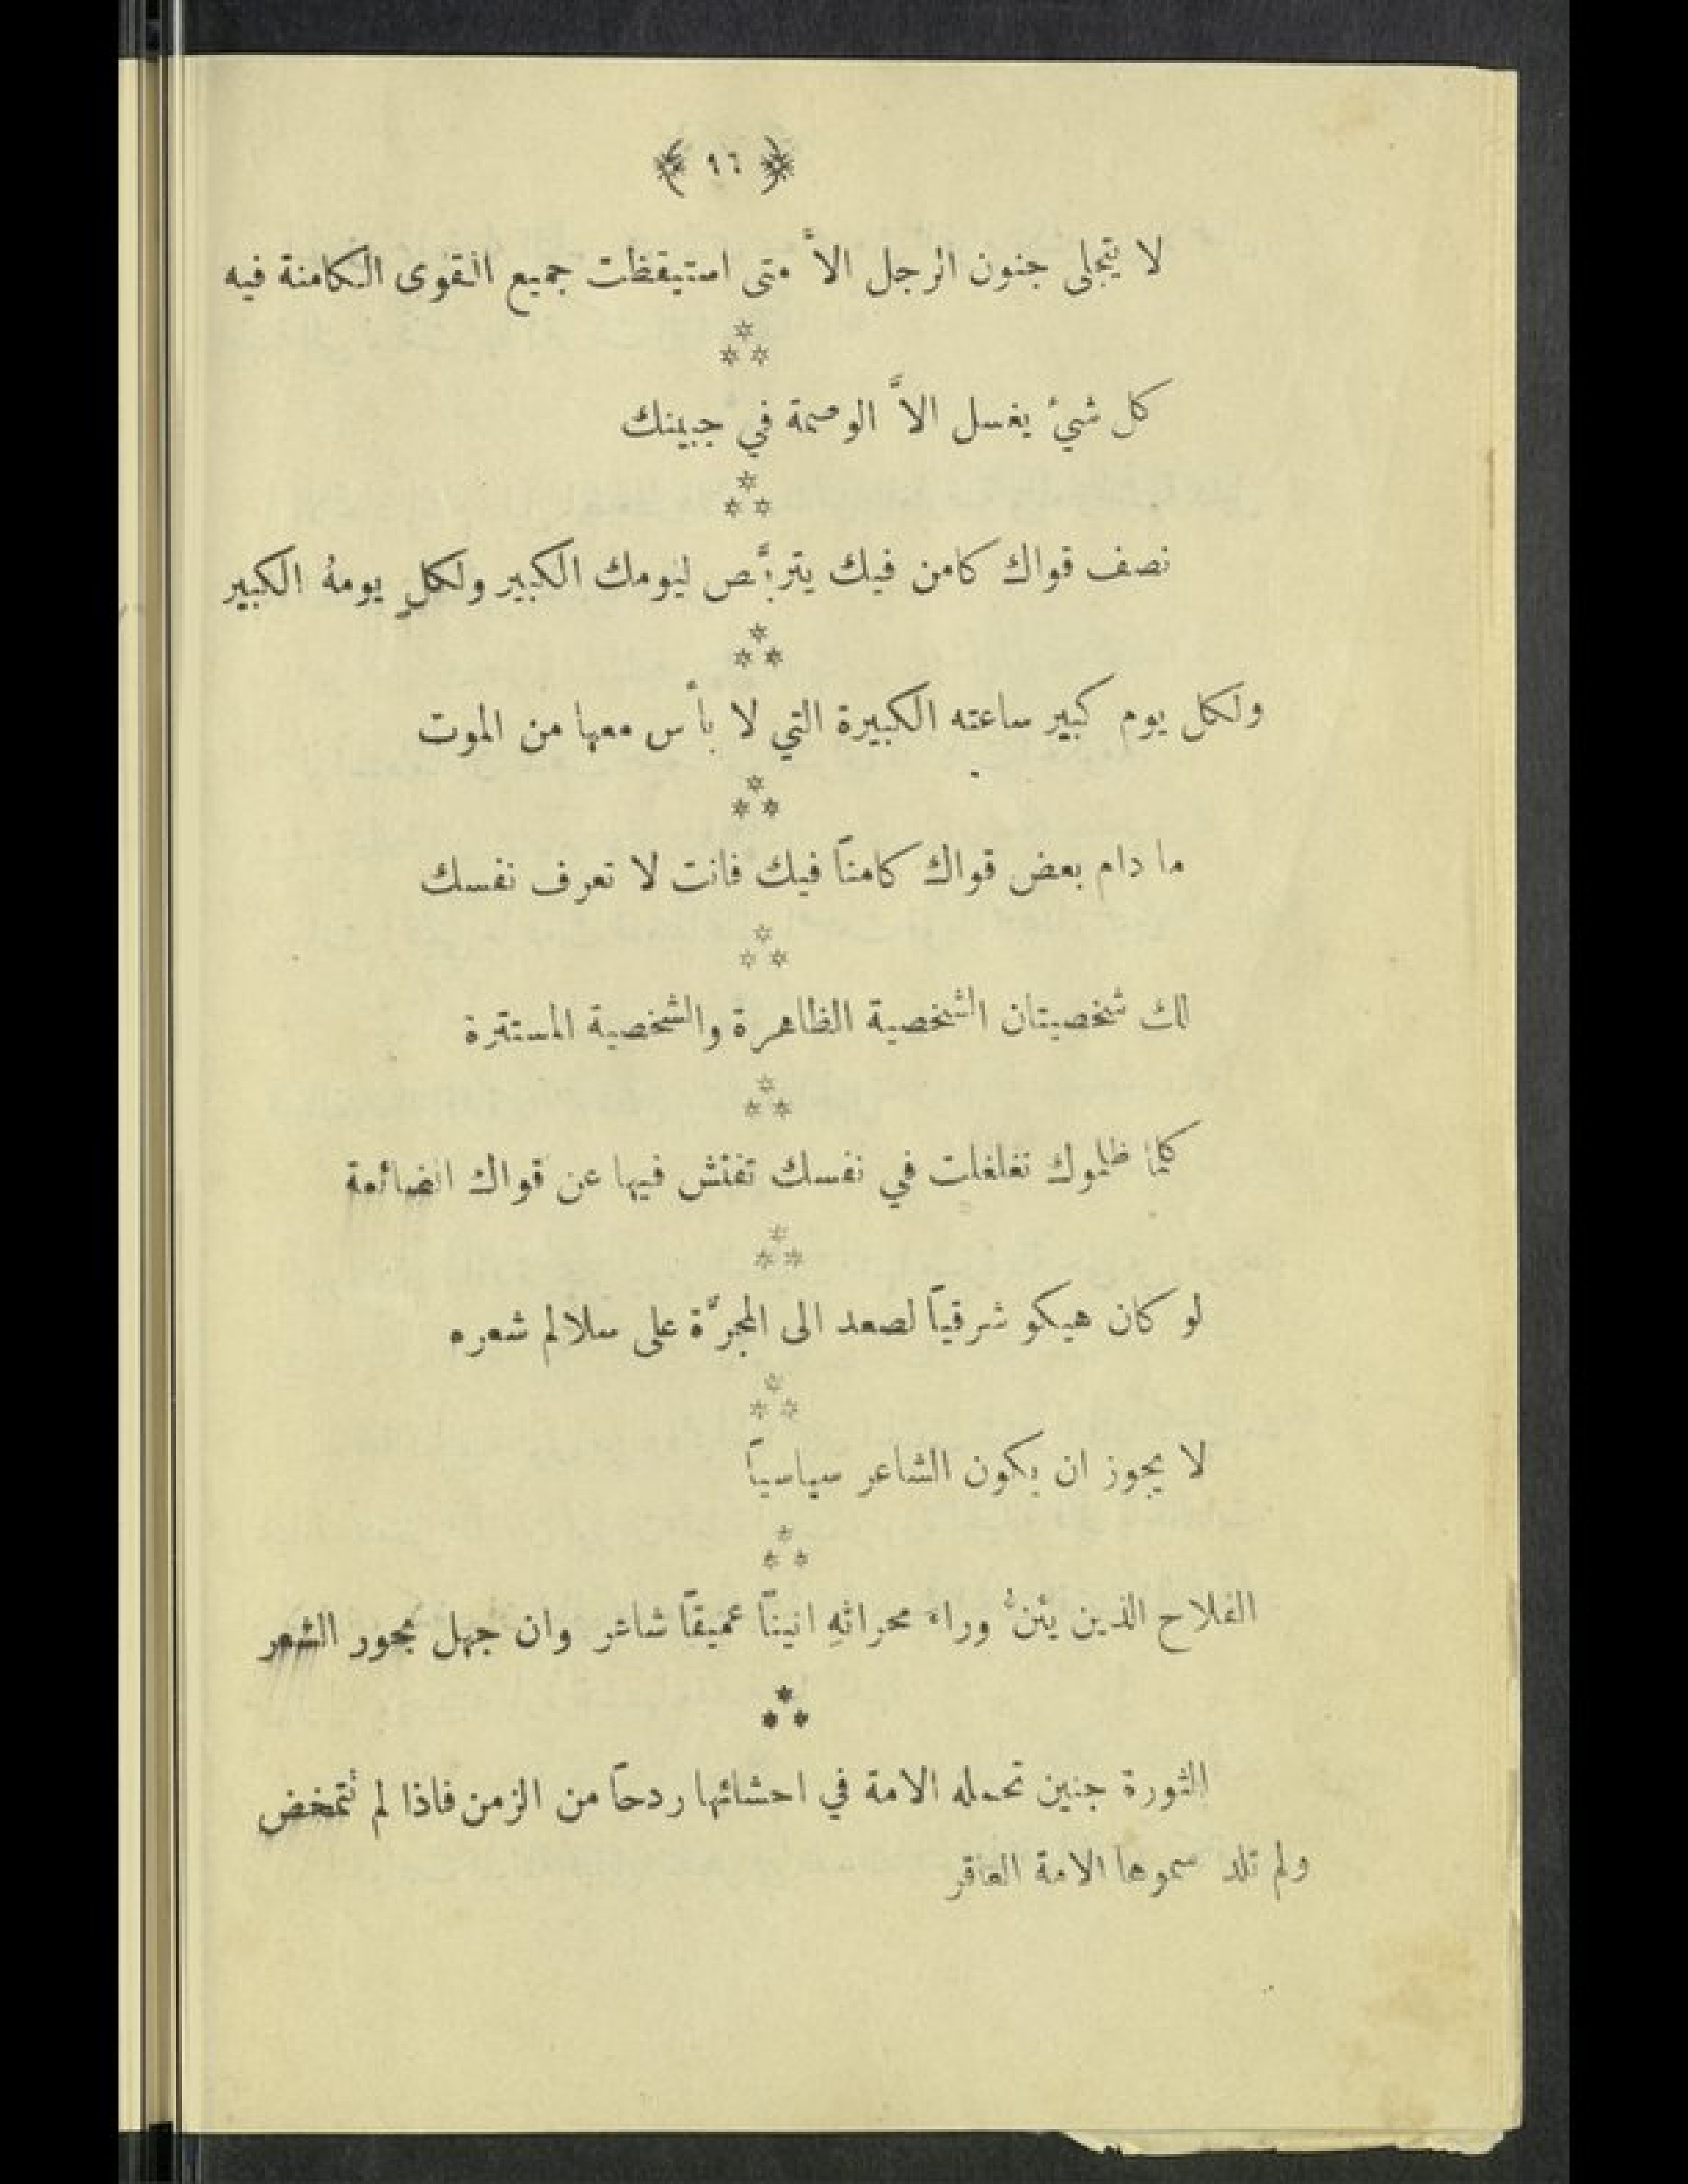 ﴿ ٩٦ ﴾
لا يتجلى جنون الرجل الاَّ متى استيقظت جميع القوى الكامنة فيه
***
كل شيءٍ يغسل الاَّ الوصمة في جبينك
***
نصف قواك كامن فيك يتربَّص ليومك الكبير ولكلٍ يومهُ الكبير
***
ولكل يوم كبير ساعته الكبيرة التي لا بأس معها من الموت
***
ما دام بعض قواك كامناً فيك فانت لا تعرف نفسك
***
لك شخصيتان الشخصية الظاهرة والشخصية المستترة
***
كلما ظلموك تغلغلت في نفسك تفتش فيها عن قواك الضائعة
***
لو كان هيكو شرقياً لصعد الى المجرَّة على سلالم شعره
***
لا يجوز ان يكون الشاعر سياسياً
***
الفلاح الذين يئنُّ وراء محراثهِ انيناً عميقاً شاعر وان جهل بحور الشعر
***
الثورة جنين تحمله الامة في احشائها ردحاً من الزمن فاذا لم تتمخض
ولم تلد سموها الامة العاقر